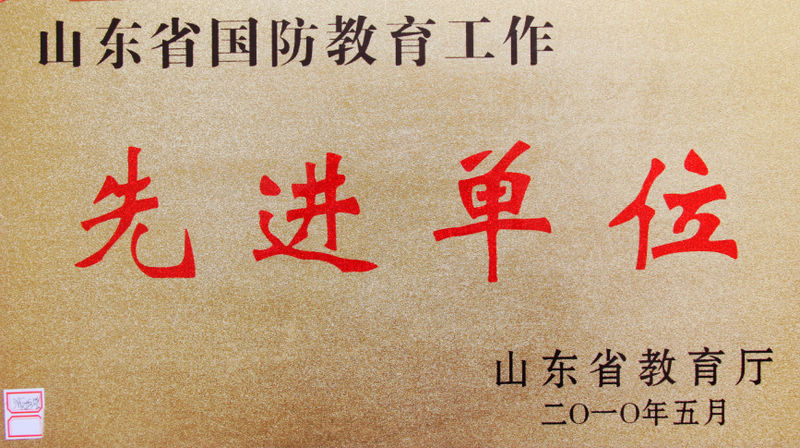 山东省国防教育工作
先进单位
山东省教育厅
二〇一〇年五月